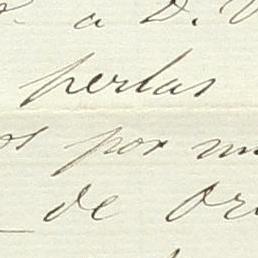 a D.
perlas
os por
de